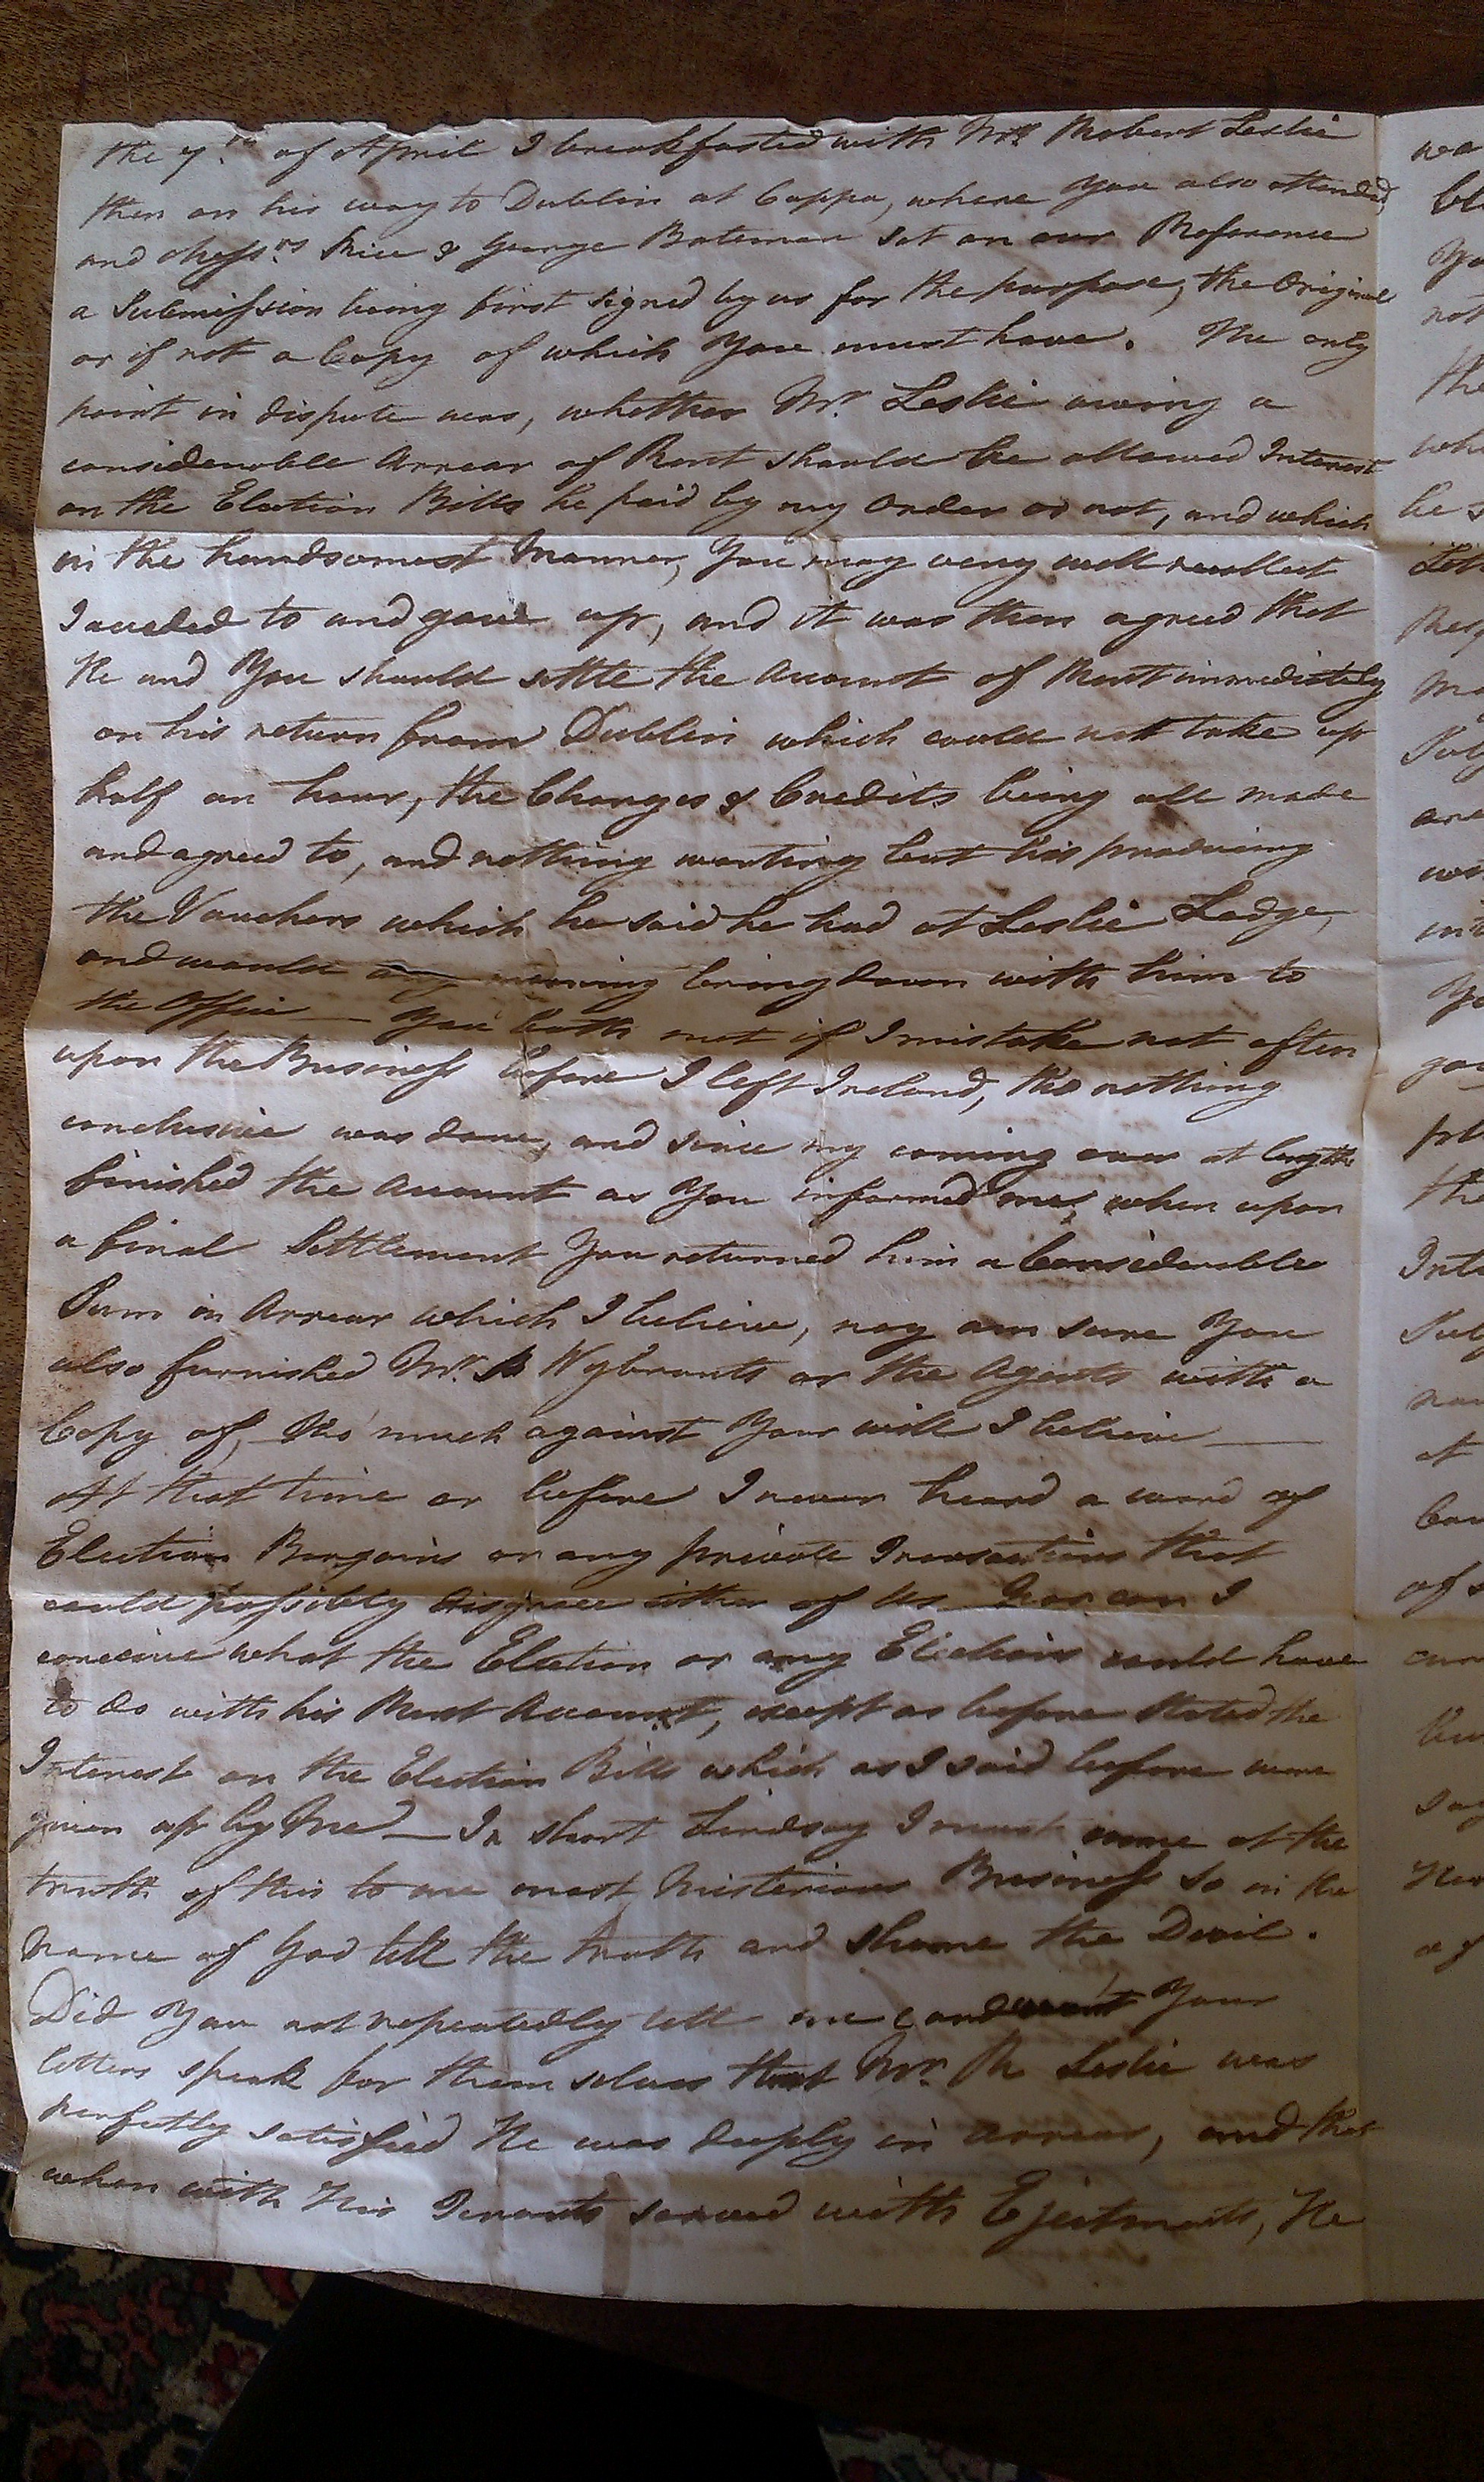 the 7.th of April I breakfasted with Mr. Robert Leslie
then on his way to Dublin at Cappa, where You also attended,
and Messrs. Rice & George Bateman sat on our Reference
a Submission being first signed by us for the purpose, the Original
or if not a Copy of which You must have. The only
point in dispute was, whether Mr. Leslie owing a
considerable Arrear of Rent should be allowed Interest
on the Election Bills he paid by my Order or not, and which
in the handsomest Manner, You may very well recollect
I acceded to and gave up, and it was then agreed that
He and You should settle the Account of Rent immediately
on his return from Dublin which could not take up
half an hour, the Charges & Credits being all made
and agreed to, and nothing wanting but his producing
the Vouchers which he said he had at Leslie Lodge,
and would any morning bring down with him to
the Office — You both met if I mistake not often
upon the Business before I left Ireland, tho nothing
conclusive was done, and since my coming over at length
finished the Account as You informed me, when upon
a final Settlement You returned him a Considerable
Sum in Arrear which I believe, nay am sure You
also furnished Mr. Wybrants or the Agents with a
Copy of, tho' much against Your will I believe —
At that time or before I never heard a word of
Election Bargains or any private Transactions that
could possibly disgrace either of Us Nor can I
conceive what the Election or any Election could have
to do with his Rent Account, except as before stated the
Interest on the Election Bills which as I said before were
given up by Me — In short Lindsay I must come at the
truth of this to me most Misterious Business so in the
Name of God tell the truth and shame the Devil.
Did You not repeatedly tell me (and Your
letters speak for themselves that Mr. R Leslie was
perfectly satisfied He was deeply in arrear, and that
when with His Tenants served with Ejectments, He